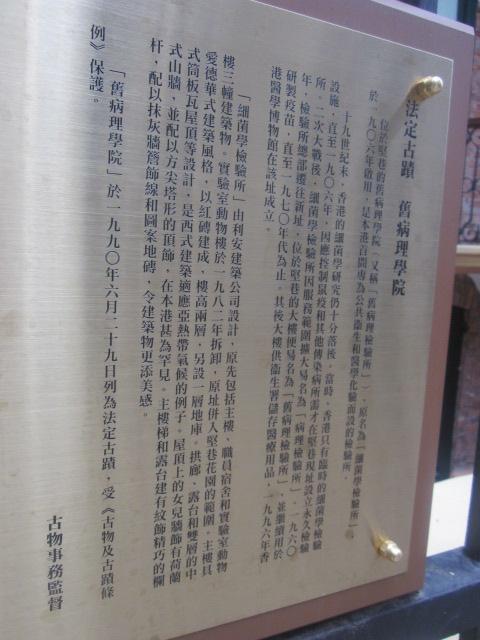 法定古蹟　舊病理學院
位於堅巷的舊病理學院（又稱「舊病理檢驗所」），原名為「細菌學檢驗所」，
於一九〇六年啟用，是本港首間專為公共衞生和醫學化驗而設的檢驗所。
十九世紀末，香港的細菌學研究仍十分落後。當時，香港只有臨時的細菌學檢驗
設施，直至一九〇六年，因應控制鼠疫和其他傳染病所需才在堅巷現址設立永久檢驗
所。二次大戰後，細菌學檢驗所因服務範圍擴大易名為「病理檢驗所」。一九六〇
年，檢驗所總部遷往新址，位於堅巷的大樓便易名為「舊病理檢驗所」，並繼續用於
研製疫苗，直至一九七〇年代為止。其後大樓供衞生署儲存醫療用品，一九九六年香
港醫學博物館在該址成立。
「細菌學檢驗所」由利安建築公司設計，原先包括主樓、職員宿舍和實驗室動物
樓三幢建築物。實驗室動物樓於一九八二年拆卸，原址併入堅巷花園的範圍。主樓具
愛德華式建築風格，以紅磚建成，樓高兩層，另設一層地庫。拱廊、露台和雙層的中
式筒板瓦屋頂等設計，是西式建築適應亞熱帶氣候的例子。屋頂上的女兒牆飾有荷蘭
式山牆，並配以方尖塔形的頂飾，在本港甚為罕見。主樓梯和露台建有紋飾精巧的欄
杆，配以抹灰牆簷飾線和圖案地磚，令建築物更添美感。
「舊病理學院」於一九九〇年六月二十九日列為法定古蹟，受《古物及古蹟條
例》保護。
古物事務監督